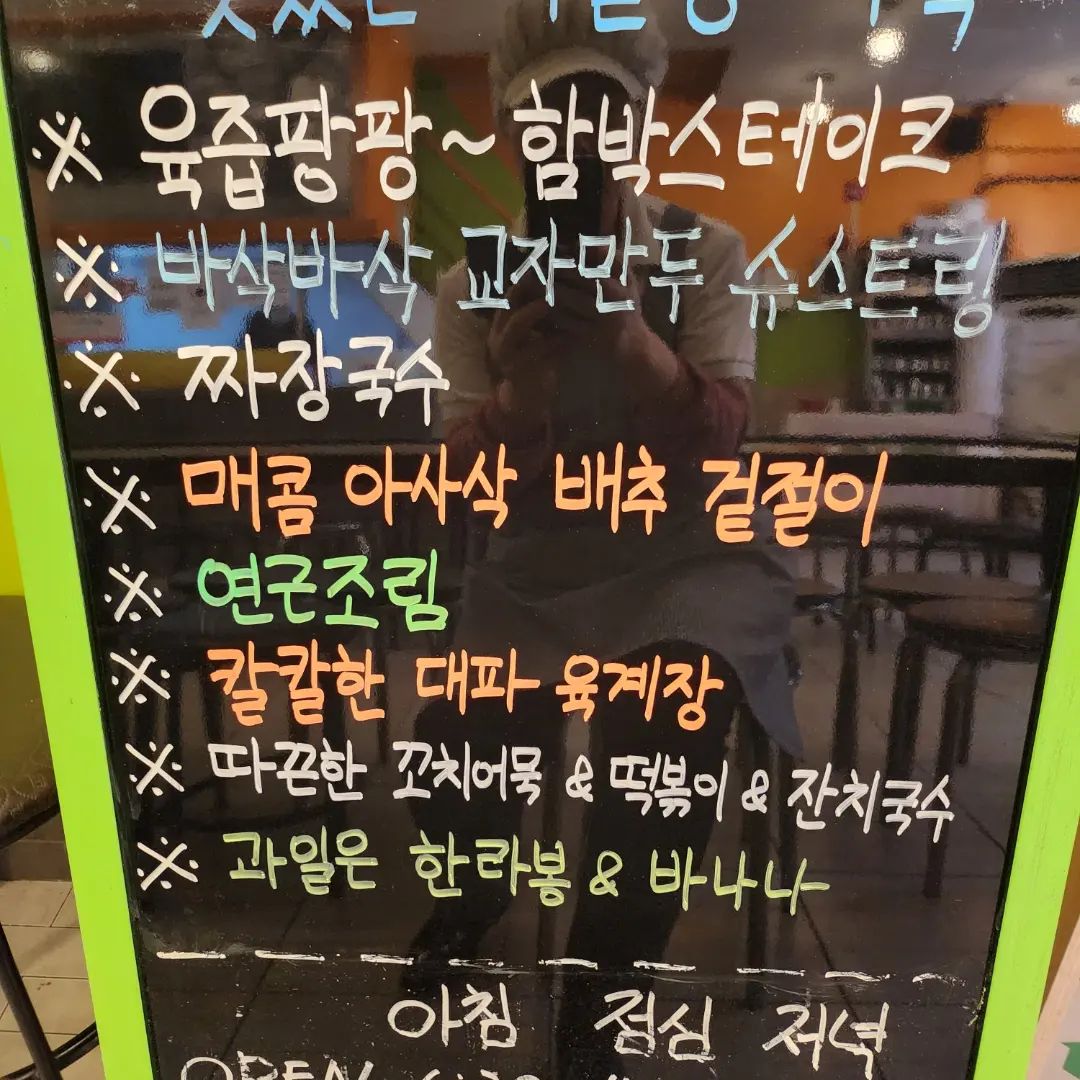 ※ 육즙팡팡~함박스테이크
※ 바삭바삭 교자만두 슈스트링
※ 짜장국수
※ 매콤 아사삭 배추 겉절이
※ 연근조림
※ 칼칼한 대파 육계장
※ 따끈한 꼬치어묵 & 떡볶이 & 잔치국수
※ 과일은 한라봉 & 바나나
아침 점심 저녁
OPEN